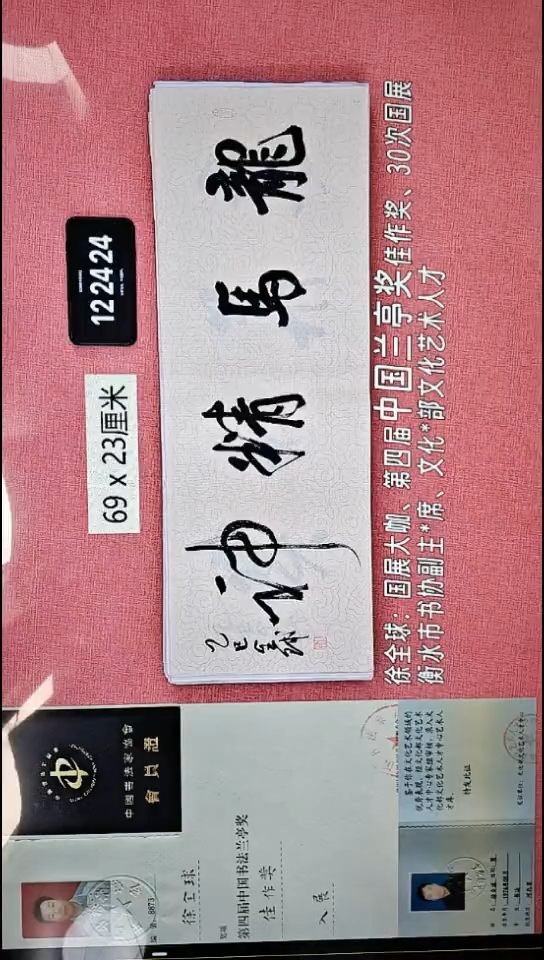 12 24 24
69 x 23厘米
龍馬精神
乙巳全球
徐全球：国展大咖、第四届中国兰亭奖佳作奖、30次国展
衡水市书协副主*席、文化*部文化艺术人才
中國書法家協會
會員證
8873
徐全球
第四届中国书法兰亭奖
佳作奖
入展
特发此证